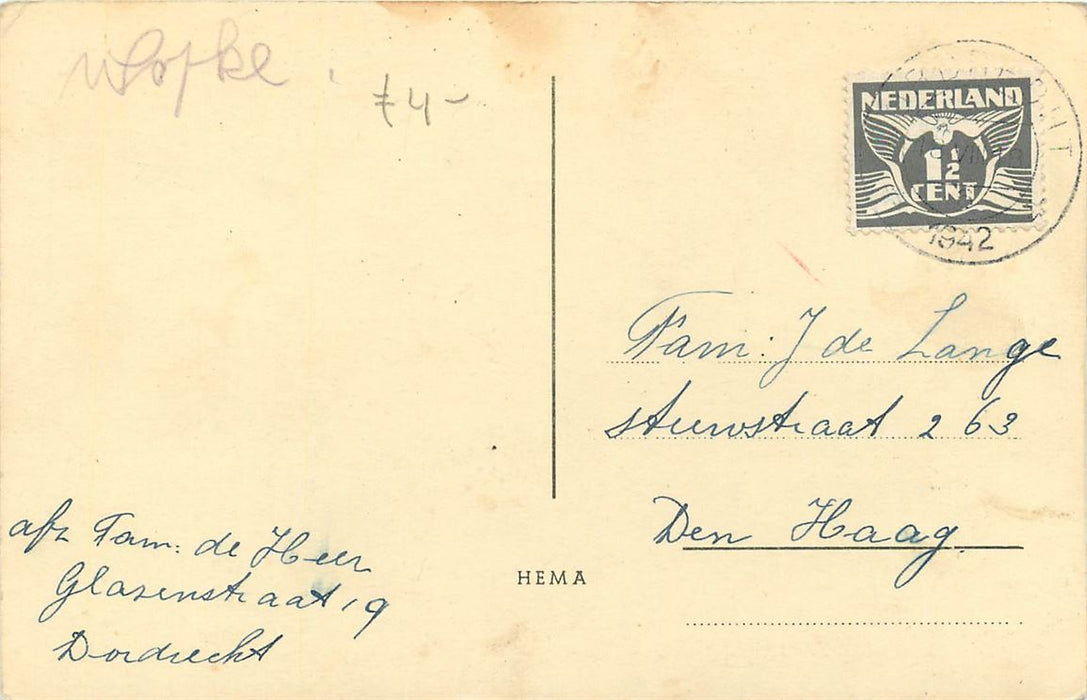 ƒ4-
NEDERLAND
1½
CENT
1942
Fam: J de Lange
Stuwstraat 263
Den Haag
afz Fam: de Heer
Glazenstraat 19
Dordrecht
HEMA